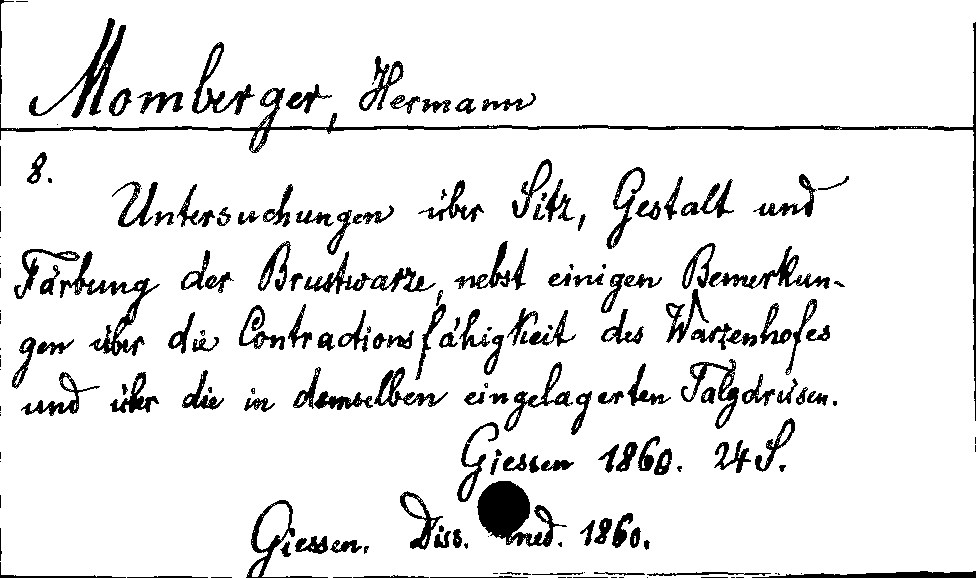 Momberger, Hermann
8.
Untersuchungen über Sitz, Gestalt und
Färbung der Brustwarze, nebst einigen Bemerkun-
gen über die Contractionsfähigkeit des Warzenhofes
und über die in demselben eingelagerten Talgdrüsen.
Giessen 1860. 24 S.
Giessen. Diss. med. 1860.